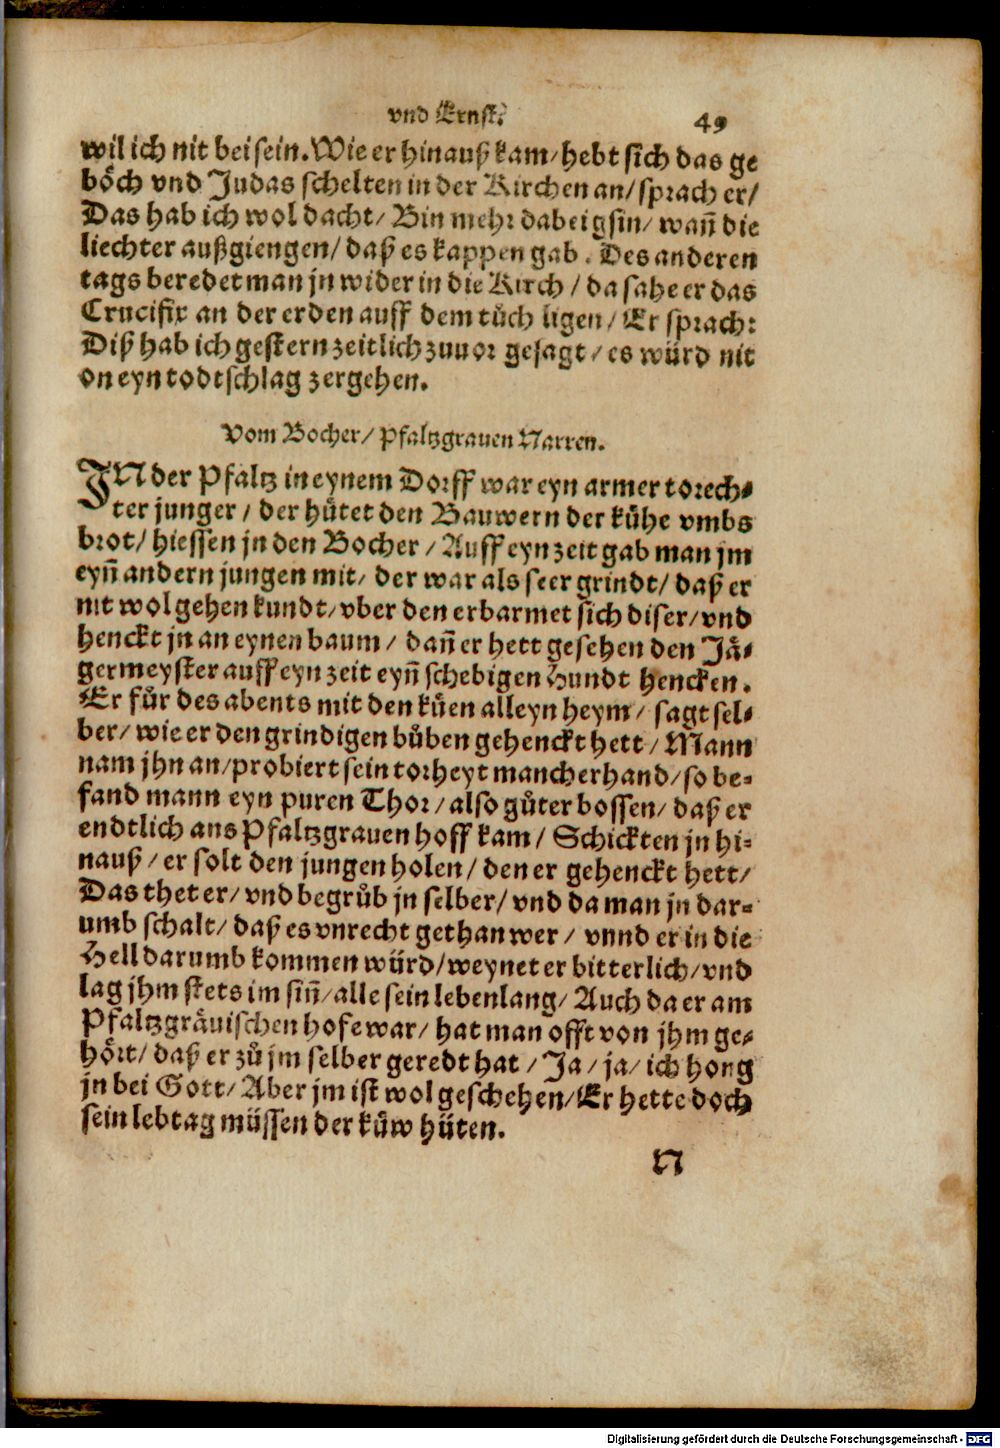 vnd Ernst. 49
wil ich nit bei sein. Wie er hinauß kam/ hebt sich das ge
boͤch vnd Judas schelten in der Kirchen an/ sprach er/
Das hab ich wol dacht/ Bin mehr dabei gsin/ wañ die
liechter außgiengen/ daß es kappen gab. Des anderen
tags beredet man jn wider in die Kirch/ da sahe er das
Crucifix an der erden auff dem tuͦch ligen/ Er sprach:
Diß hab ich gestern zeitlich zuuor gesagt/ es würd nit
on eyn todtschlag zergehen.
Vom Bocher/ Pfaltzgrauen Narren.
IN der Pfaltz in eynem Dorff war eyn armer torech-
ter junger/ der huͤtet den Bauwern der kuͤhe vmbs
brot/ hiessen jn den Bocher/ Auff eyn zeit gab man jm
eyñ andern jungen mit/ der war als seer grindt/ daß er
nit wol gehen kundt/ vber den erbarmet sich diser/ vnd
henckt jn an eynen baum/ dañ er hett gesehen den Jaͤ-
germeyster auff eyn zeit eyñ schebigen Hundt hencken.
Er fuͦr des abents mit den kuͤen alleyn heym/ sagt sel-
ber/ wie er den grindigen buͦben gehenckt hett/ Mann
nam jhn an/ probiert sein torheyt mancherhand/ so be-
fand mann eyn puren Thor/ also guͦter bossen/ daß er
endtlich ans Pfaltzgrauen hoff kam/ Schickten jn hi-
nauß/ er solt den jungen holen/ den er gehenckt hett/
Das thet er/ vnd begruͦb jn selber/ vnd da man jn dar-
umb schalt/ daß es vnrecht gethan wer/ vnnd er in die
Hell darumb kommen würd/ weynet er bitterlich/ vnd
lag jhm stets im siñ/ alle sein lebenlang/ Auch da er am
Pfaltzgraͤuischen hofe war/ hat man offt von jhm ge-
hoͤrt/ daß er zuͦ jm selber geredt hat/ Ja/ ja/ ich hong
jn bei Gott/ Aber jm ist wol geschehen/ Er hette doch
sein lebtag müssen der kuͤw hüten.
N
Digitalisierung gefördert durch die Deutsche Forschungsgemeinschaft - DFG